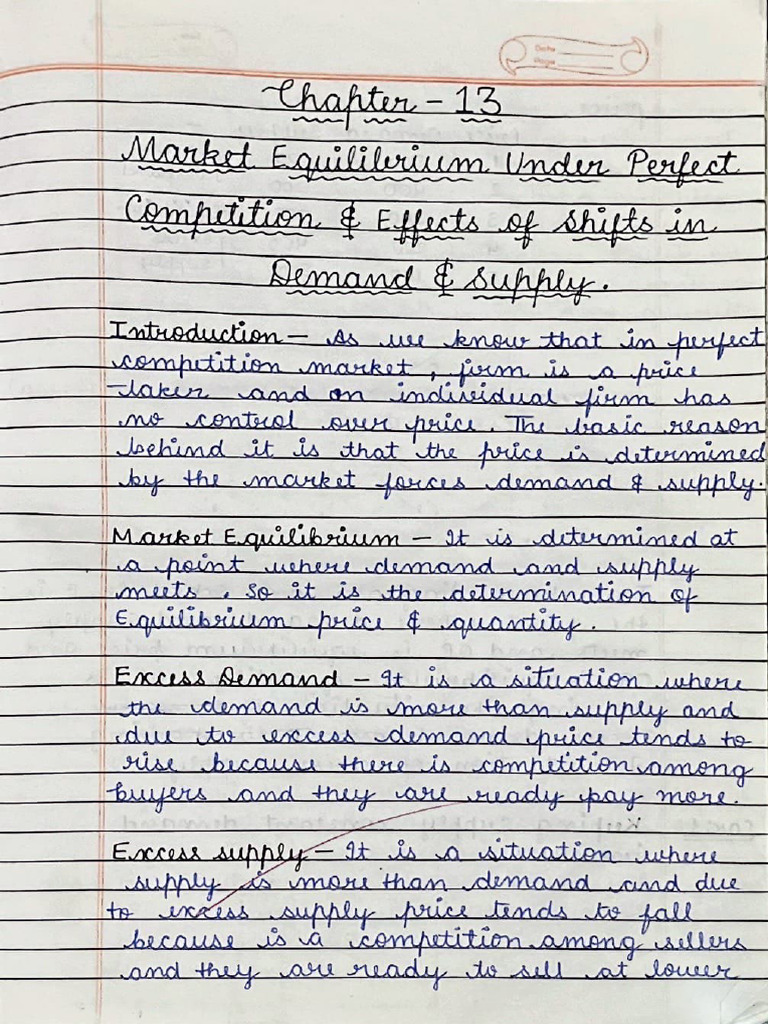 Chapter - 13
Market Equilibrium Under Perfect
Competition & Effects of Shifts in
Demand & Supply.
Introduction - As we know that in perfect
competition market, firm is a price
-taker and an individual firm has
no control over price. The basic reason
behind it is that the price is determined
by the market forces demand & supply.
Market Equilibrium - It is determined at
a point where demand and supply
meets. So it is the determination of
Equilibrium price & quantity.
Excess Demand - It is a situation where
the demand is more than supply and
due to excess demand price tends to
rise because there is competition among
buyers and they are ready pay more.
Excess supply - It is a situation where
supply is more than demand and due
to excess supply price tends to fall
because is a competition among sellers
and they are ready to sell at lower